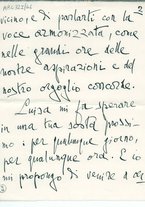 2
vicino, e di parlarti con la
voce armonizzata, come
nelle grandi ore delle
nostre aspirazioni e del
nostro orgoglio concorde.
Luisa mi fa sperare
in una tua sosta prossi-
ma: per qualunque giorno,
per qualunque ora. E io
mi propongo di venire a